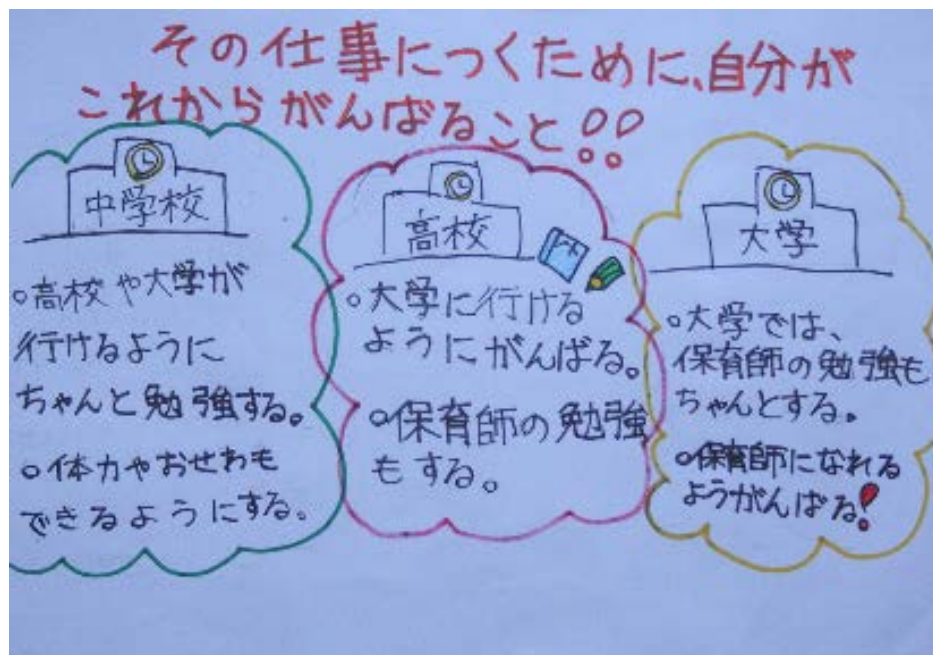 その仕事につくために、自分が
これからがんばること!!
中学校
。高校や大学が
行けるように
ちゃんと勉強する。
。体力やおせわも
できるようにする。
高校
。大学に行ける
ようにがんばる。
。保育師の勉強
もする。
大学
。大学では、
保育師の勉強も
ちゃんとする。
。保育師になれる
ようがんばる!